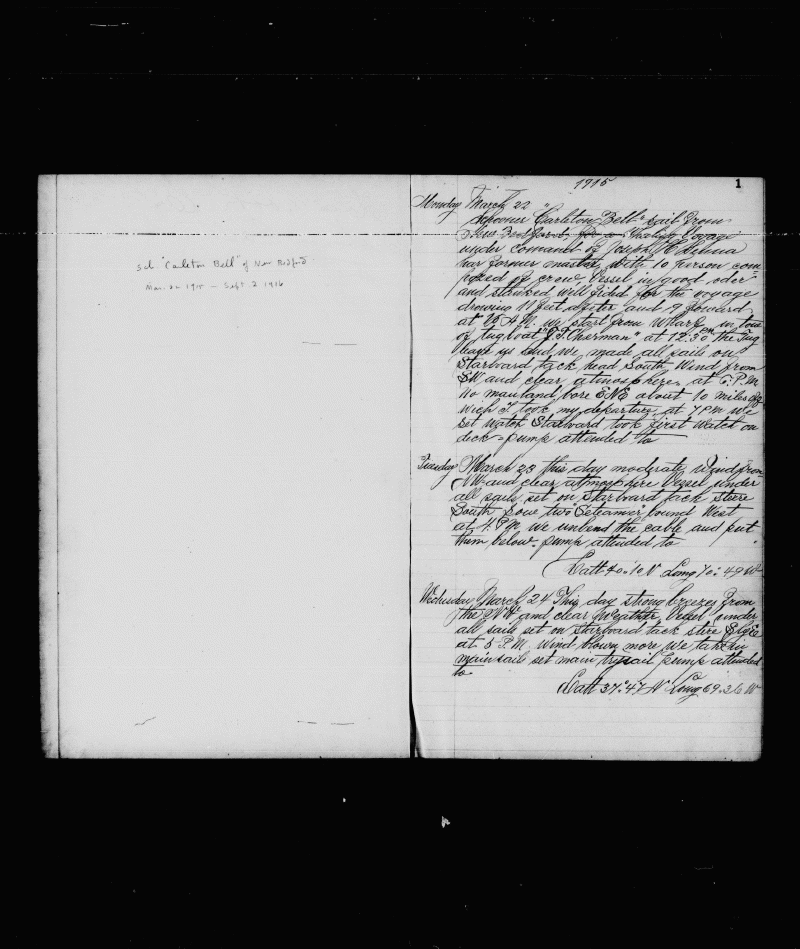 Sch. "Carleton Bell" of New Bedford
Mar. 22 1915 — Sept 2 1916
1915
1
Monday March 22
Schooner "Carleton Bell" sail from
New Bedford, for a Whaling Voyage
under comand of Joseph H
har former master, with 10 person com
posed of crew, Vessel in good oder
and stanken, will fided for the voyage
drowing 11 feet after and 9 foward
at 10 A.M. we start from Wharf in tow
of tugboat "J.T. Sherman" at 12:30 PM the Tug
leave us and we made all sail on
Starboard tack head South, Wind from
SW and clear atmosphere. at 6. P.M
No manland bore ENE about 10 miles off
wich I took my departure. at 7 PM we
set watch Starboard took first watch on
deck = pump attended to
Tuesday March 23 this day moderate Wind from
NW and clear atmosphire Vessel under
all sails set on starboard tack stere
South sow two Steamer bound West
at 4. P.M. we unbend the cable and put
them below. pump attended to
Latt 40.10 N Long 70: 49 W
Wednesday March 24 This day strong breezes from
the NW and clear Weather Vessel under
all sails set on starboard tack stere
at 5 P.M. Wind blown more we take in
mainsail set main trysail pump attended
to
Latt 37°47 N Long 69.36 W